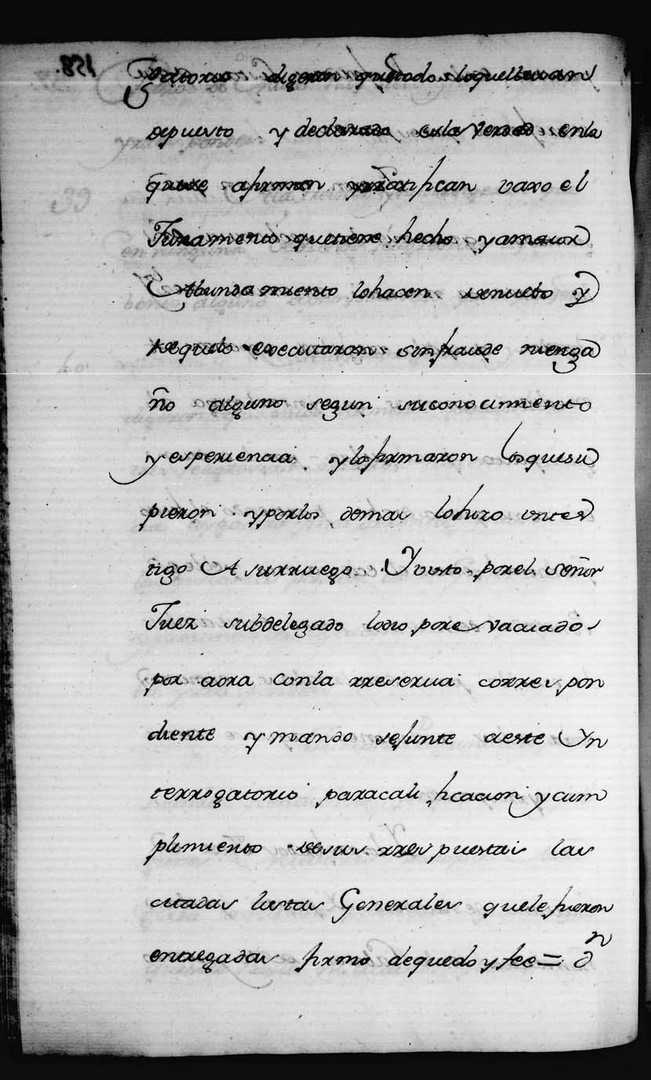 gatorio digeron que todo lo que llevan
depuesto y declarado es la verdad en la
que se afirman y ratifican vaxo el
Juramento que tienen hecho y a maior
Abundamiento lo hacen de nuebo y
de que lo executaron sin fraude ni enga
ño alguno segun su conocimiento
y esperiencia y lo firmaron los que su
pieron y por los demas lo hizo un tes
tigo A su rruego. Y visto por el Señor
Juez subdelegado lo dio por evacuado
por aora con la rreserva correspon
diente y mando se junte a este Yn
terrogatorio para calificacion y cum
plimiento de sus rrespuestas las
citadas listas Generales que le fueron
entregadas firmo de que doy fee = Dn